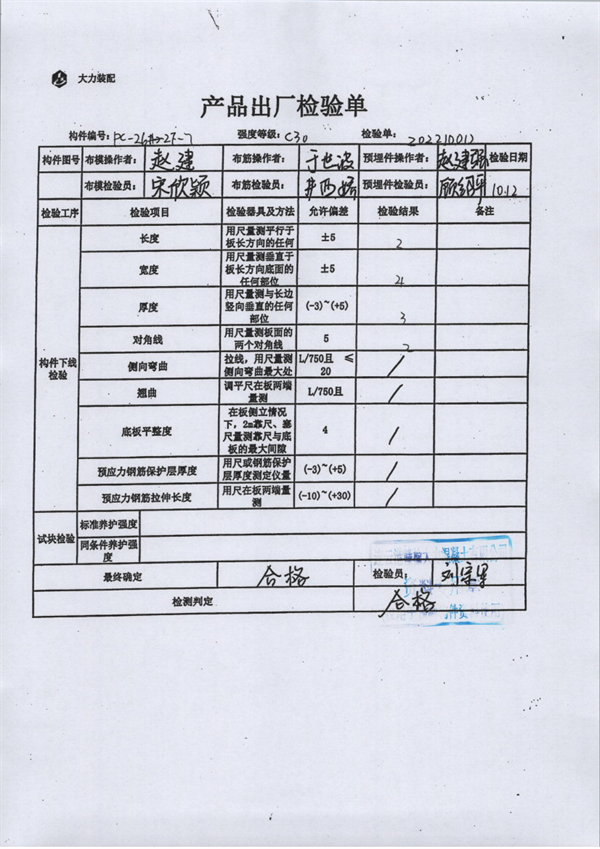 大力装配
产品出厂检验单
构件编号: PC-26#-2F-7 强度等级: C30 检验单: 20221012
构件图号 布模操作者: 赵建 布筋操作者: 于世波 预埋件操作者: 赵建强 检验日期
布模检验员: 宋欣颖 布筋检验员: 预埋件检验员: 10.12
检验工序 检验项目 检验器具及方法 允许偏差 检验结果 备注
构件下线检验
长度 用尺量测平行于板长方向的任何 ±5 2
宽度 用尺量测垂直于板长方向底面的任何部位 ±5 4
厚度 用尺量测与长边竖向垂直的任何部位 (-3)~(+5) 3
对角线 用尺量测板面的两个对角线 5 2
侧向弯曲 拉线，用尺量测侧向弯曲最大处 L/750且 ≤20 /
翘曲 调平尺在板两端量测 L/750且 /
底板平整度 在板侧立情况下，2m靠尺、塞尺量测靠尺与底板的最大间隙 4 /
预应力钢筋保护层厚度 用尺或钢筋保护层厚度测定仪量 (-3)~(+5) /
预应力钢筋拉伸长度 用尺在板两端量测 (-10)~(+30) /
试块检验 标准养护强度
同条件养护强度
最终确定 合格 检验员: 刘宗军
检测判定 合格